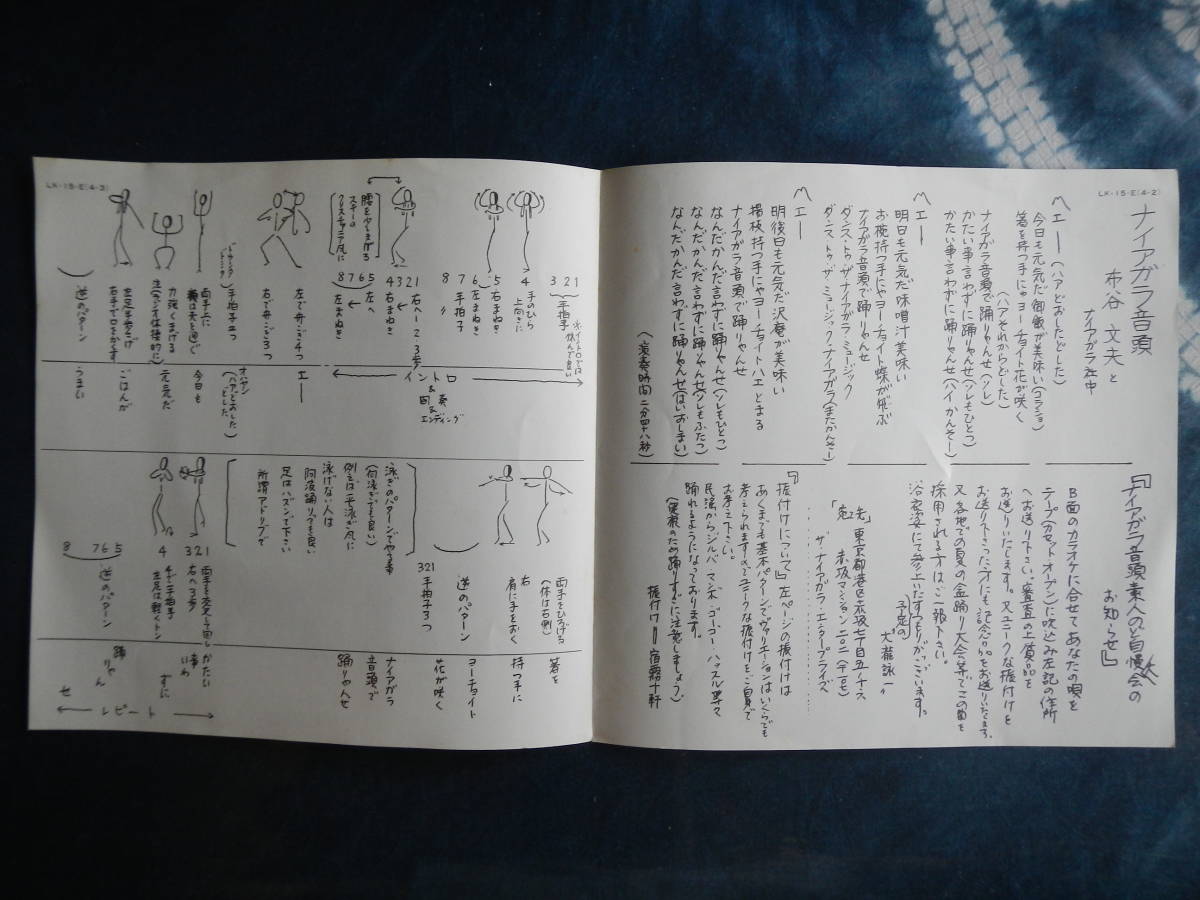 LK-15-E(4-2)
ナイアガラ音頭
布谷 文夫と
ナイアガラ社中
ヘエー(ハアどおしたどした)
今日も元気だ御飯が美味い(コラショ)
箸を持つ手にャヨーチョイト花が咲く
(ハアそれからどした)
ナイアガラ音頭で踊りゃんせ(ソレ)
かたい事言わずに踊りゃんせ(ソレもひとつ)
かたい事言わずに踊りゃんせ(ハイかんそー)
ヘエー
明日も元気だ味噌汁美味い
お椀持つ手にゃヨーチョイト蝶が飛ぶ
ナイアガラ音頭で踊りゃんせ
ダンス・トゥ・ザ・ナイアガラ・ミュージック
ダンス・トゥ・ザ・ミュージック・ナイアガラ(またかんそー)
ヘエー
明後日も元気だ沢庵が美味い
楊枝持つ手にゃヨーチョイトハエとまる
ナイアガラ音頭で踊りゃんせ
なんだかんだ言わずに踊りゃんせ(ソレもひとつ)
なんだかんだ言わずに踊りゃんせ(ソレもふたつ)
なんだかんだ言わずに踊りゃんせ(はいおしまい)
(演奏時間 二分四十八秒)
『ナイアガラ音頭素人のど自慢大会の
お知らせ』
B面のカラオケに合せてあなたの唄を
テープ(カセット・オープン)に吹込み左記の住所
へお送り下さい。審査の上賞品を
お送りいたします。又ユニークな振付けを
お送り下さった方にも記念品をお送りいたします。
又各地での夏の盆踊り大会等でこの曲を
採用される方はご一報下さい。
浴衣姿にて参上いたす予定のつもりがございます。
"大瀧詠一"
「宛先」東京都港区赤坂七丁目五ノ
赤坂マンション二〇二
ザ・ナイアガラ・エンタープライズへ
『振付けについて』左ページの振付けは
あくまでも基本パターンでヴァリエーションはいくらでも
考えられますのでユニークな振付けをご自身で
お考え下さい。
民謡からジルバ・マンボ・ゴーゴー・ハッスル等々
踊れるようになっております。
(健康のため踊りすぎに注意しましょう)
振付け=宿霧十軒
LK-15-E(4-3)
※イントロでは休んで良い
3 2 1 手拍子
4 手のひら上向きに
5 右まねき
6 左まねき
7 手拍子
8 〃
3 2 1 右へ1・2・3歩
4 右まねき
7 6 5 左へ
8 左まねき
腰を少し曲げる
スキーのクリスチャニア風に
イントロ
&
間奏
&
エンディング
左で舟こぎ4つ
右で舟こぎ3つ
エー
手拍子三つ
(トトンタントントン)
オハヤシ
(ハアどおしたどした)
両手上に
今日も
力強くまげる
(ラジオ体操的に)
元気だ
左足1歩さげ
右手で口をかくす
ごはんが
逆のパターン
うまい
両手をひろげる
(体は右側)
箸を
右
肩に手をおく
持つ手に
逆のパターン
ヨーチョイト
3 2 1
手拍子3つ
花が咲く
泳ぎのパターンでやる事
(何泳ぎでも良い)
例えば平泳ぎ風に
泳げない人は
阿波踊りでも良い
足はハズンで下さい
所謂アドリブで
ナイアガラ
音頭で
踊りゃんせ
3 2 1 両手を交叉して回し
右へ3歩
かたい
事いわ
4 4で手拍子
左足は軽くトン
ずに
7 6 5
8
逆のパターン
踊
りゃん
せ
レピート